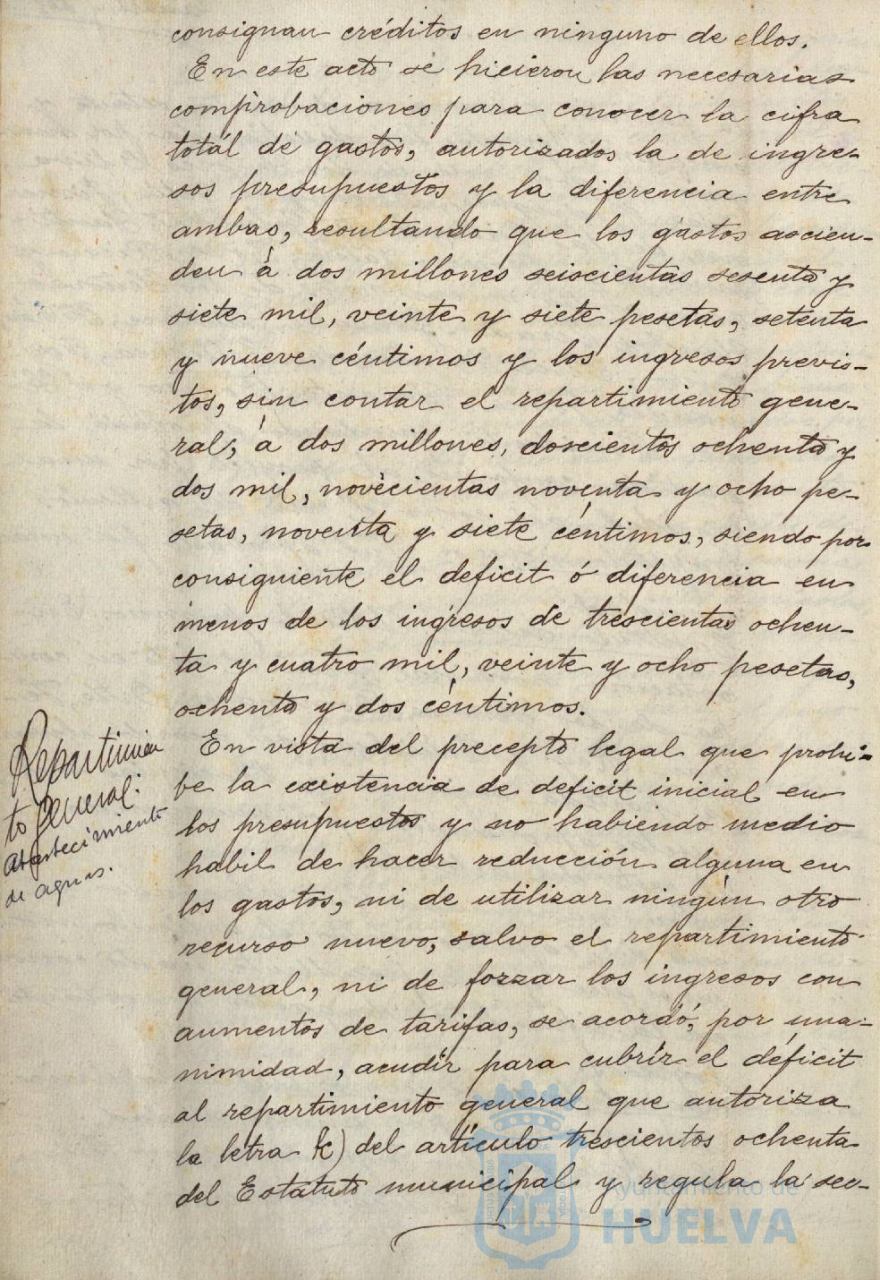 consignan créditos en ninguno de ellos.
En este acto se hicieron las necesarias
comprobaciones para conocer la cifra
totál de gastos, autorizados la de ingre-
sos presupuestos y la diferencia entre
ambas, resultando que los gastos ascien-
den á dos millones seiscientas sesenta y
siete mil, veinte y siete pesetas, setenta
y nueve céntimos y los ingresos previs-
tos, sin contar el repartimiento gene-
ral, á dos millones, doscientos ochenta y
dos mil, novecientas noventa y ocho pe-
setas, noventa y siete céntimos, siendo por
consiguiente el deficit ó diferencia en
menos de los ingresos de trescientas ochen-
ta y cuatro mil, veinte y ocho pesetas,
ochenta y dos céntimos.
Repartimien
to general:
abastecimiento
de aguas.
En vista del precepto legal que prohi-
be la existencia de deficit inicial en
los presupuestos y no habiendo medio
habil de hacer reducción alguna en
los gastos, ni de utilizar ningún otro
recurso nuevo, salvo el repartimiento
general, ni de forzar los ingresos con
aumentos de tarifas, se acordó, por una-
nimidad, acudir para cubrir el déficit
al repartimiento general que autoriza
la letra k) del artículo trescientos ochenta
del Estatuto municipal y regula la sec-
Ayuntamiento de
HUELVA